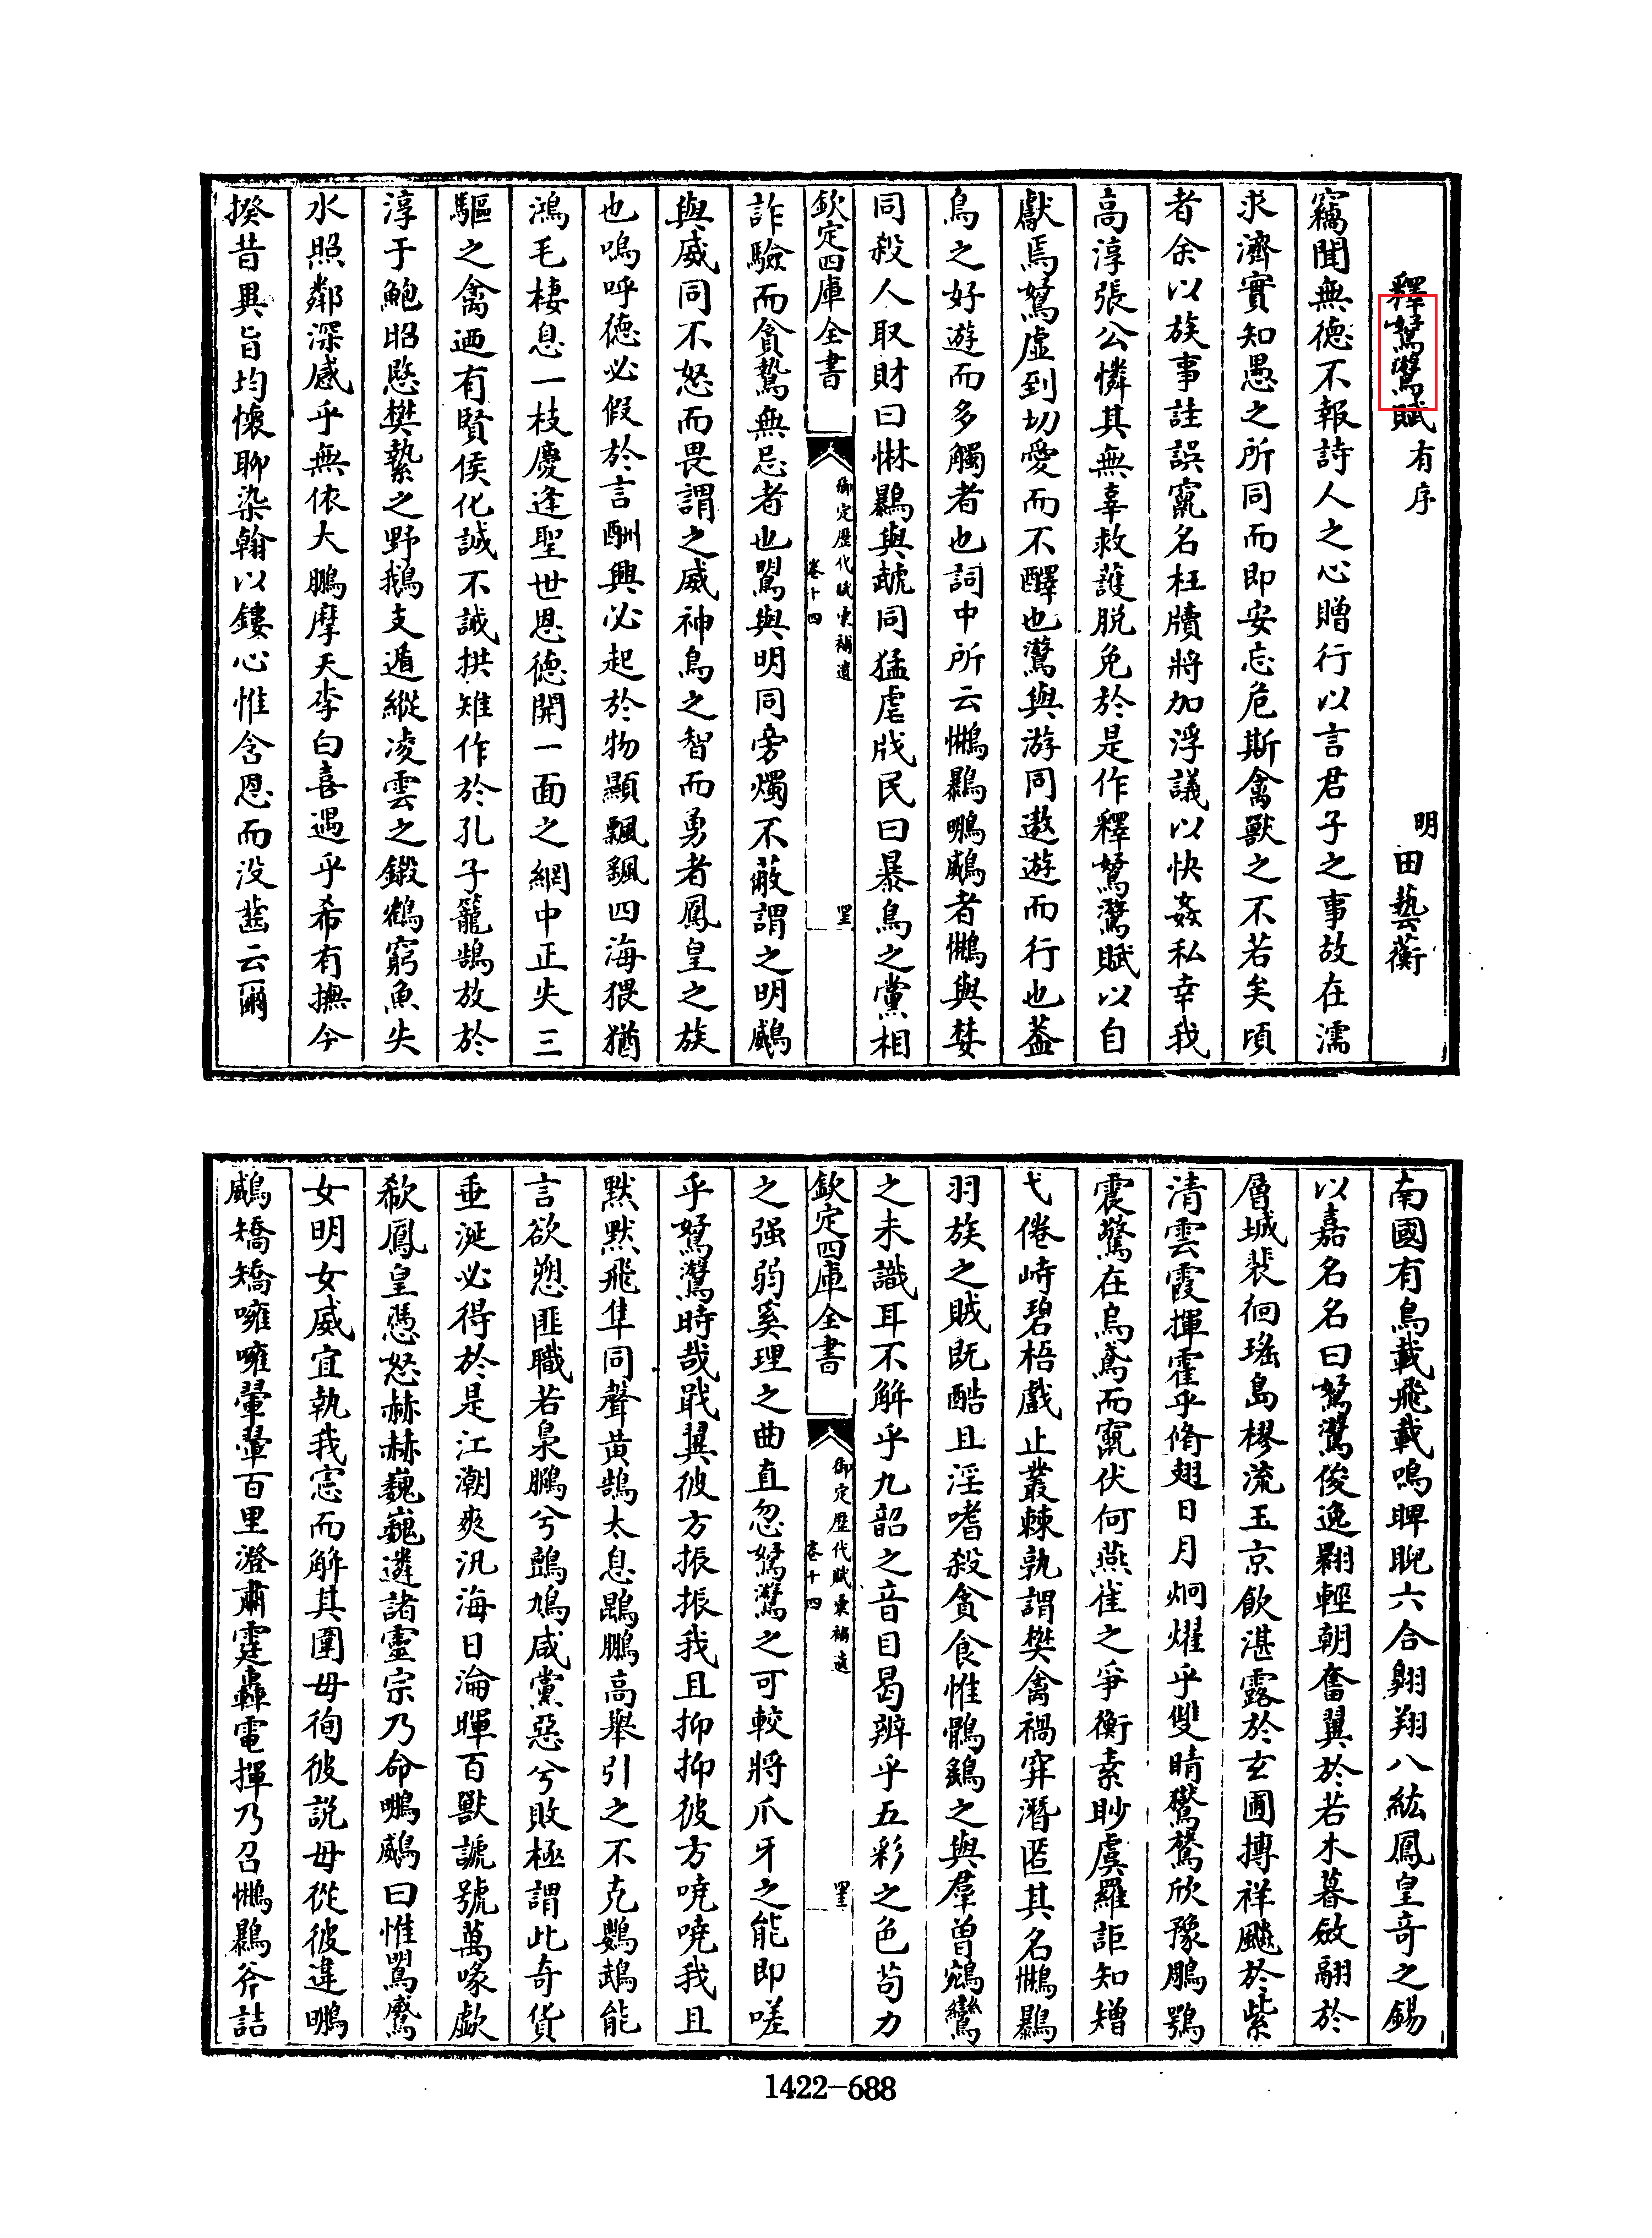 釋賦有序 明 田藝蘅
竊聞無德不報詩人之心贈行以言君子之事故在濡
求濟實知愚之所同而即安忘危斯禽獸之不若矣頃
者余以族事詿誤竄名枉牘將加浮議以快姦私幸我
高淳張公憐其無辜救護脱免於是作釋賦以自
獻焉虛到切愛而不醳也與游同遨遊而行也蓋
鳥之好遊而多觸者也詞中所云鸔䳟者與婪
同殺人取財曰惏鸔與虣同猛虐戕民曰暴鳥之黨相
欽定四庫全書 御定歷代賦彙補遺 卷十四
詐驗而貪鷙無忌者也與明同旁燭不蔽謂之明
與威同不怒而畏謂之威神鳥之智而勇者鳳皇之族
也嗚呼德必假於言酬興必起於物顯飄飄四海猥猶
鴻毛棲息一枝慶逢聖世恩德開一面之網中正失三
驅之禽迺有賢侯化誠不諴拱雉作於孔子籠鵠放於
淳于鮑昭愍樊縶之野鵝支遁縱凌雲之鎩鶴窮魚失
水照鄰深感乎無依大鵬摩天李白喜遇乎希有撫今
揆昔異旨均懷聊染翰以鏤心惟含恩而没齒云爾
南國有鳥載飛載鳴睥睨六合翱翔八紘鳳皇奇之錫
以嘉名名曰俊逸翾輕朝奮翼於若木暮斂翮於
層城裴徊瑤島樛流玉京飲湛露於玄圃摶祥飇於紫
清雲霞揮霍乎脩翅日月炯燿乎雙睛鸑鷟欣豫鵰鶚
震驚在烏鳶而竄伏何燕雀之爭衡素眇虞羅詎知矰
弋倦峙碧梧戲止叢棘孰謂樊禽禍穽潛匿其名鸔
羽族之賊既酷且淫嗜殺貪食惟鶻鷂之與羣曾鵷鸞
之未識耳不解乎九韶之音目曷辨乎五彩之色苟力
欽定四庫全書 御定歷代賦彙補遺 卷十四
之强弱奚理之曲直忽之可較將爪牙之能即嗟
乎時哉戢翼彼方振振我且抑抑彼方嘵嘵我且
默默飛隼同聲黄鵠太息鵾鵬高舉引之不克鸚鵡能
言欲愬匪職若梟鵩兮鷓鳩咸黨惡兮敗極謂此奇貨
垂涎必得於是江潮爽汛海日淪暉百獸號萬喙歔
欷鳳皇憑怒赫赫巍巍遴諸靈宗乃命䳟曰惟鷹
女明女威宜執我憲而解其圍毋徇彼説毋從彼違䳟
矯矯嗈嗈翬翬百里澄肅霆轟電揮乃召鸔斧詰
1422—688